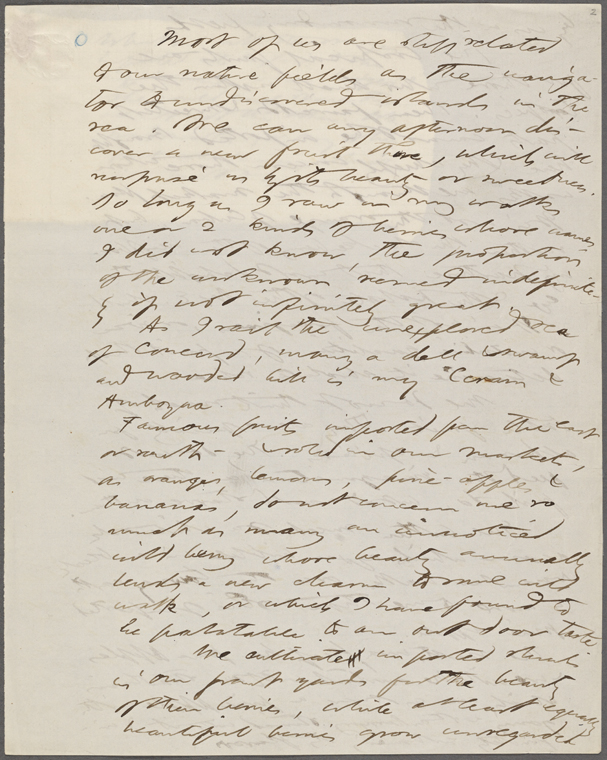 2
Most of us are still related
to our native fields as the naviga-
tor to undiscovered islands in the
sea. We can any afternoon dis-
cover a new fruit there, which will
surprise us by its beauty or sweetness.
So long as I saw in my walks
one or 2 kinds of berries whose names
I did not know, the proportion
of the unknown seemed indefinite-
ly if not infinitely great.
As I sail the unexplored sea
of Concord, many a dell & swamp
and wooded hill is my Ceram &
Amboyna.
Famous fruits imported from the east
or south – sold in our markets,
as oranges, lemons, pine-apples &
bananas, do not concern me so
much as many an unnoticed
wild berry whose beauty annually
lends a new charm to some wild
walk, or which I have found to
be palatable to an out door taste
We cultivate imported shrubs
in our front yards for the beauty
of their berries, while at least equally
beautiful berries grow unregarded